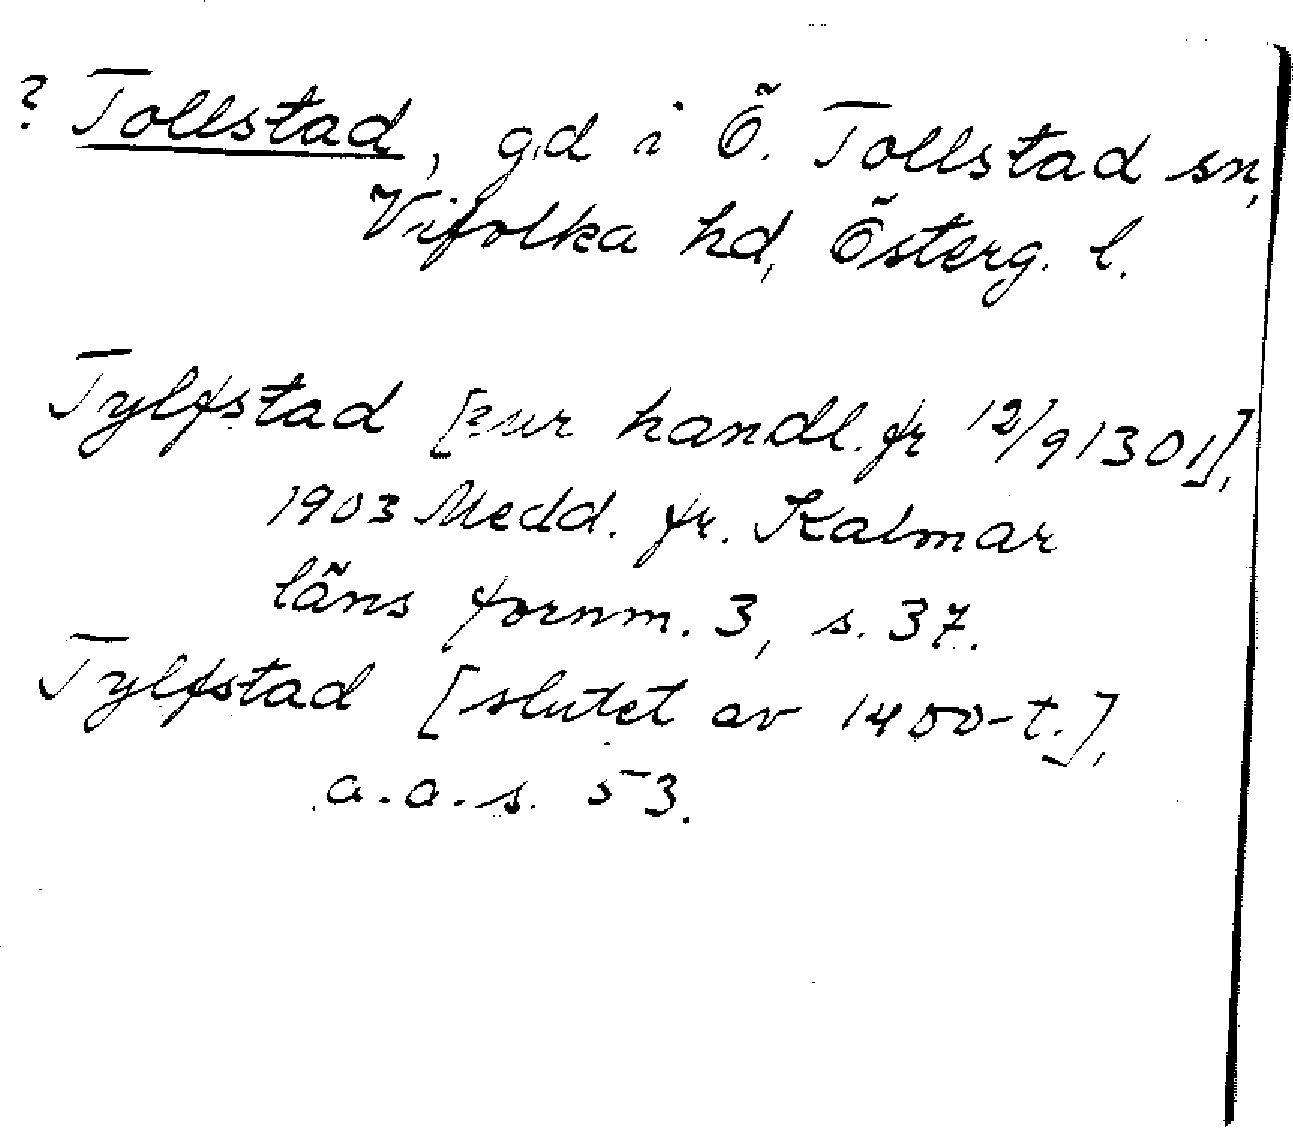 ? Tollstad, gd i Ö. Tollstad sn,
Vifolka hd, Österg. l.
Tylfstad [eur handl. fr 12/9 1301],
1903 Medd. fr. Kalmar
läns fornm. 3, s. 37.
Tylfstad [slutet av 1400-t.],
a.a.s. 53.